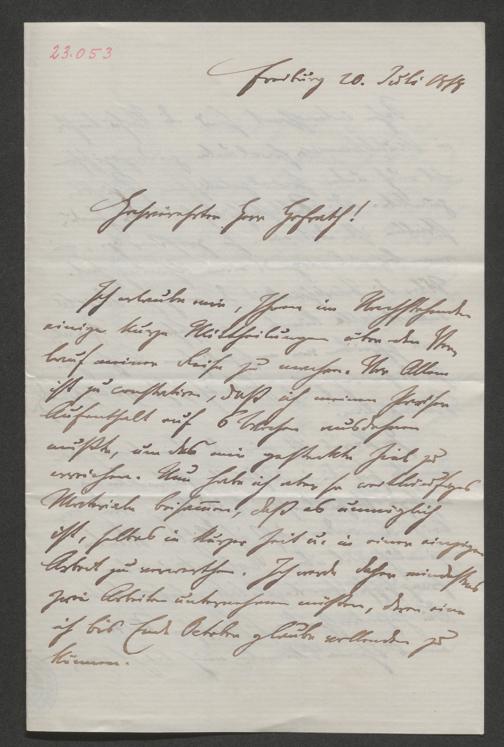 23.053
Freiburg 20. Juli 1878
Hochverehrter Herr Hofrath!
Ich erlaube mir, Ihnen im Nachstehenden
einige kurze Mittheilungen über den Ver-
lauf meiner Reise zu machen. Vor Allem
ist zu constatiren, daß ich meinen
Aufenthalt auf 6 Wochen ausdehnen
mußte, um das mir gesteckte Ziel zu
erreichen. Nun habe ich aber so
Materiale beisammen, daß es unmöglich
ist, selbes in kurzer Zeit u. in einer einzigen
Arbeit zu verwerthen. Ich werde daher mindestens
zwei Arbeiten unternehmen müssen, deren eine
ich bis Ende October glaube vollenden zu
können.